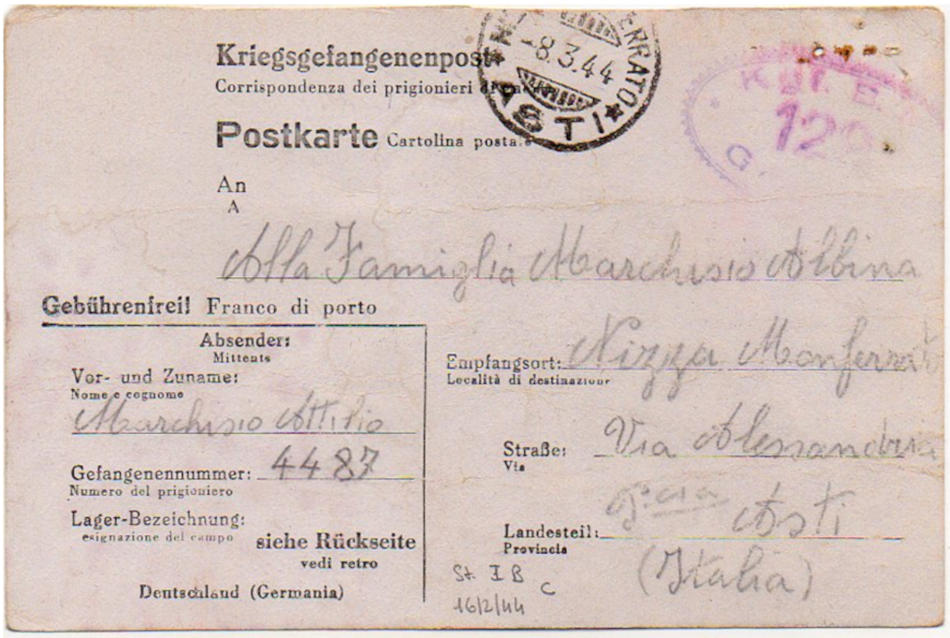 Kriegsgefangenenpost
Corrispondenza dei prigionieri
Postkarte Cartolina postale
ERRATO
-8.3.44
ASTI
An
A
Alla Famiglia Marchisio Albina
Gebührenfrei! Franco di porto
Absender:
Mittente
Vor- und Zuname:
Nome e cognome
Marchisio Attilio
Gefangenennummer: 4487
Numero del prigioniero
Lager-Bezeichnung:
esignazione del campo
siehe Rückseite
vedi retro
Deutschland (Germania)
Empfangsort: Nizza Monferrat
Località di destinazione
Straße: Via Alessandria
Via
Landesteil: Asti
Provincia
(Italia)
St. I B
16/2/44 C